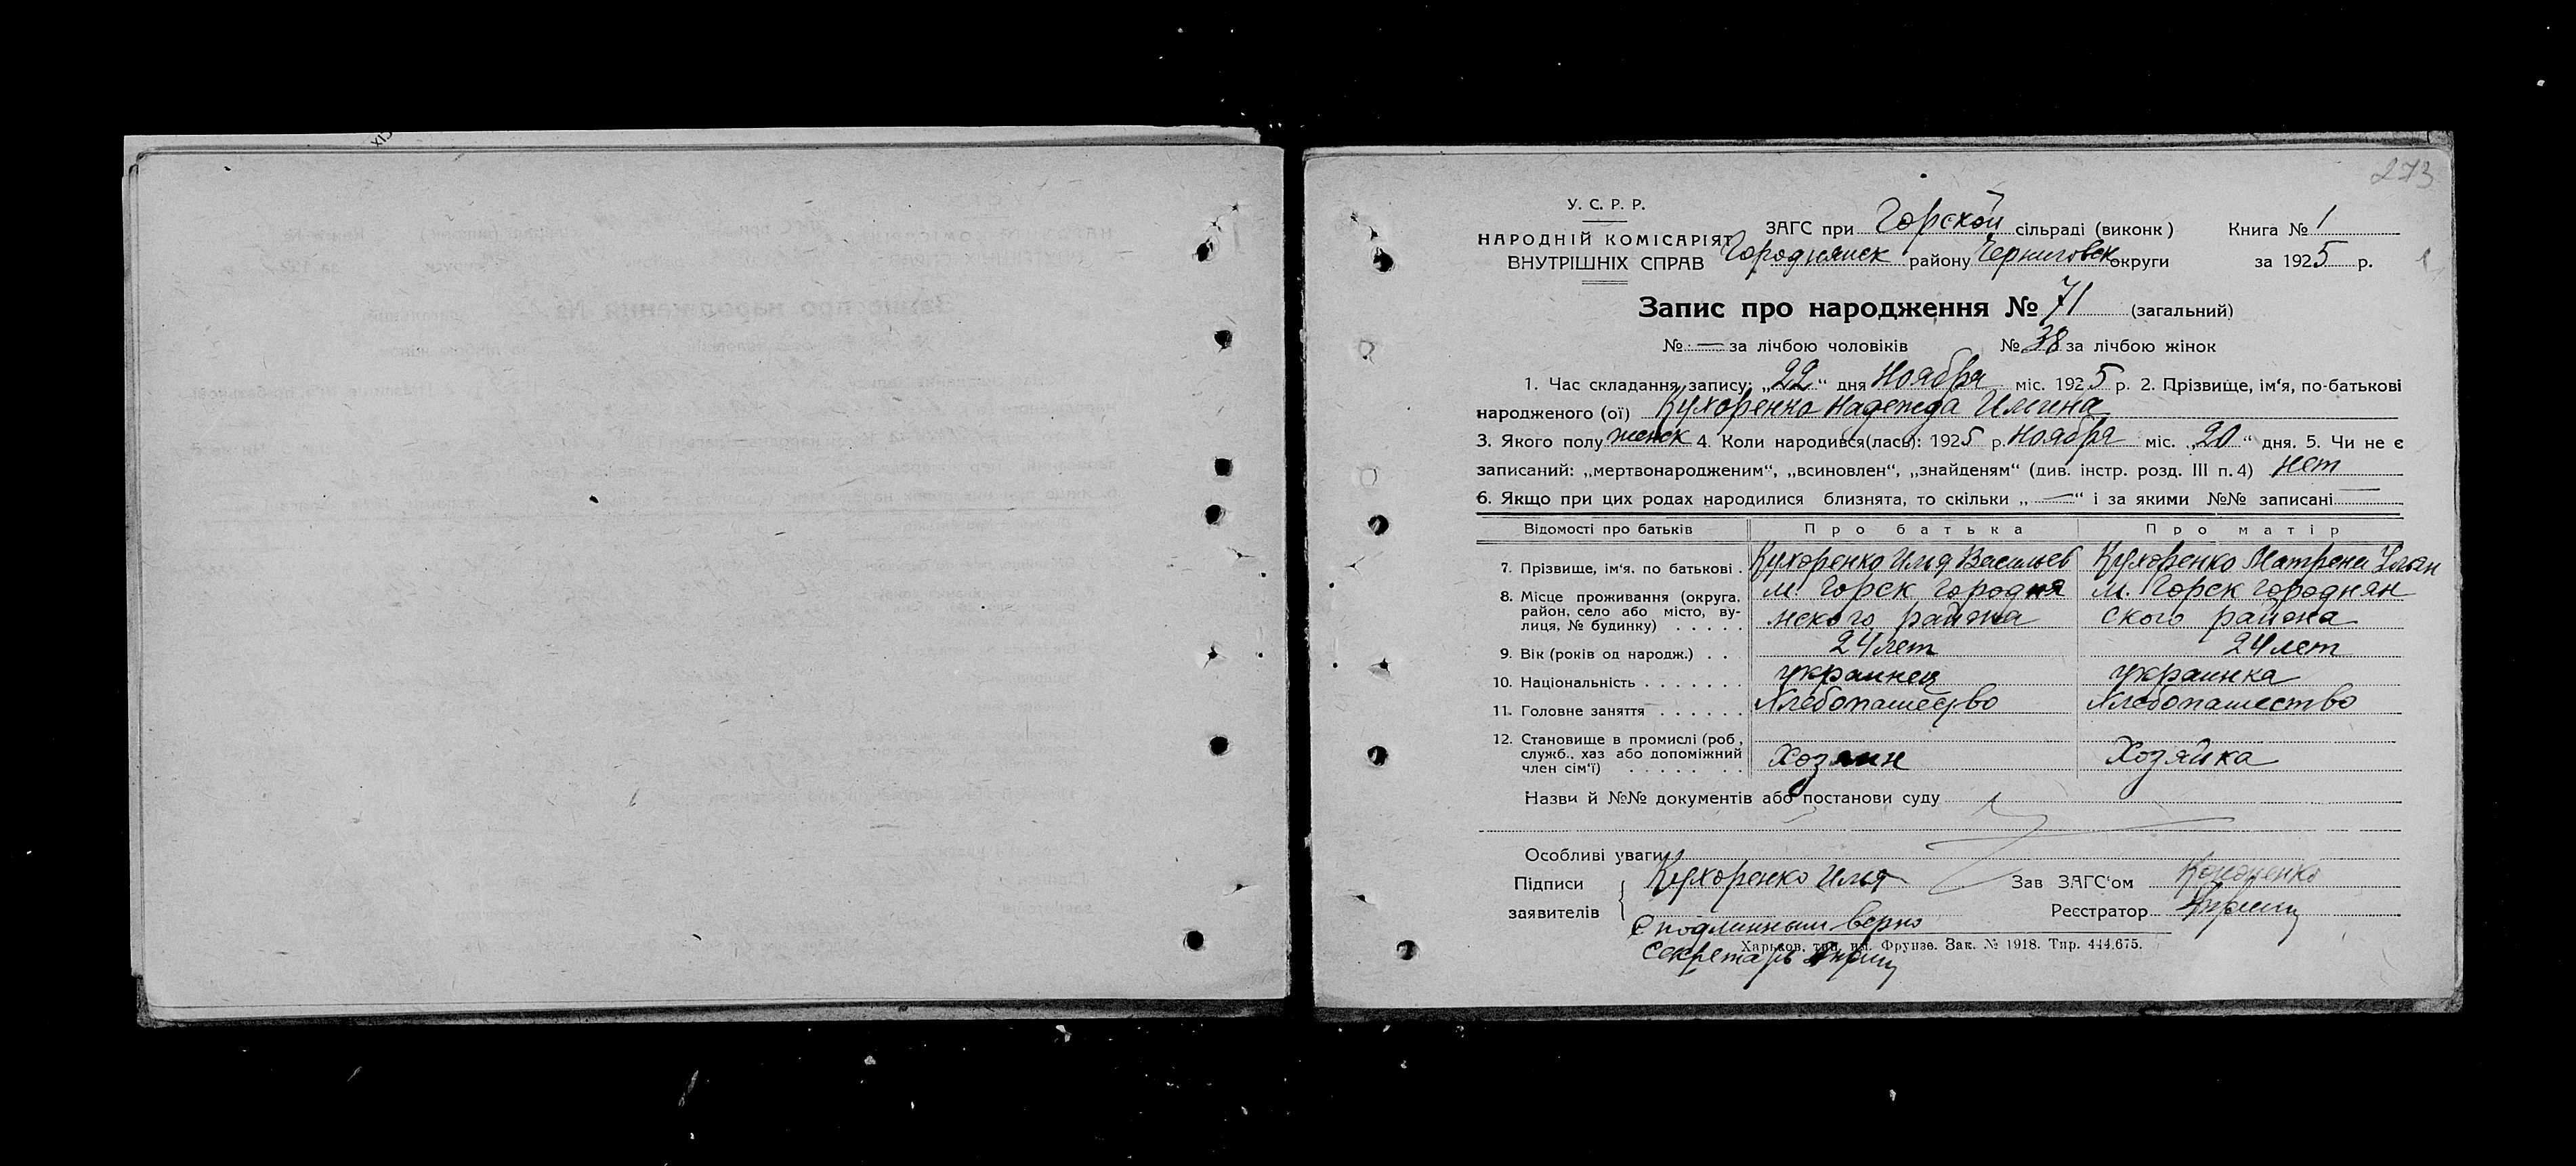 273
У. С. Р. Р.
НАРОДНІЙ КОМІСАРІЯТ
ВНУТРІШНІХ СПРАВ
ЗАГС при Горской сільраді (виконк)
Городнянск району Черниговск округи
Книга № 1
за 1925 р.
Запис про народження № 71 (загальний)
№ — за лічбою чоловіків № 38 за лічбою жінок
1. Час складання запису: „22“ дня Ноября міс. 1925 р. 2. Прізвище, ім‘я, по-батькові
народженого (ої) Кухоренко Надежда Илина
3. Якого полу женск 4. Коли народився(лась): 1925 р. Ноября міс. „20“ дня. 5. Чи не є
записаний: „мертвонародженим“, „всиновлен“, „знайденям“ (див. інстр. розд. III п. 4) нет
6. Якщо при цих родах народилися близнята, то скільки „—“ і за якими №№ записані —
Відомості про батьків Про батька Про матір
7. Прізвище, ім‘я. по батькові . Кухоренко Илья Васильев Кухоренко Матрена Ульян
8. Місце проживання (округа, район, село або місто, ву- м. Горск городня м. Горск городнян
лиця, № будинку) . . . . . нского района ского района
9. Вік (років од народж.) . . 24 лет 24 лет
10. Національність . . . . . . . украинец украинка
11. Головне заняття . . . . . . Хлебопашество Хлебопашество
12. Становище в промислі (роб.,
служб., хаз або допоміжний
член сім‘ї) . . . . . . . Хозяин Хозяйка
Назви й №№ документів або постанови суду
Особливі уваги
Підписи
заявителів
Кухоренко Илья
Зав ЗАГС‘ом Кононенко
Реєстратор
С подлинным верно
Секретарь
Харьков, тип. им. Фрунзе. Зак. № 1918. Тир. 444.675.